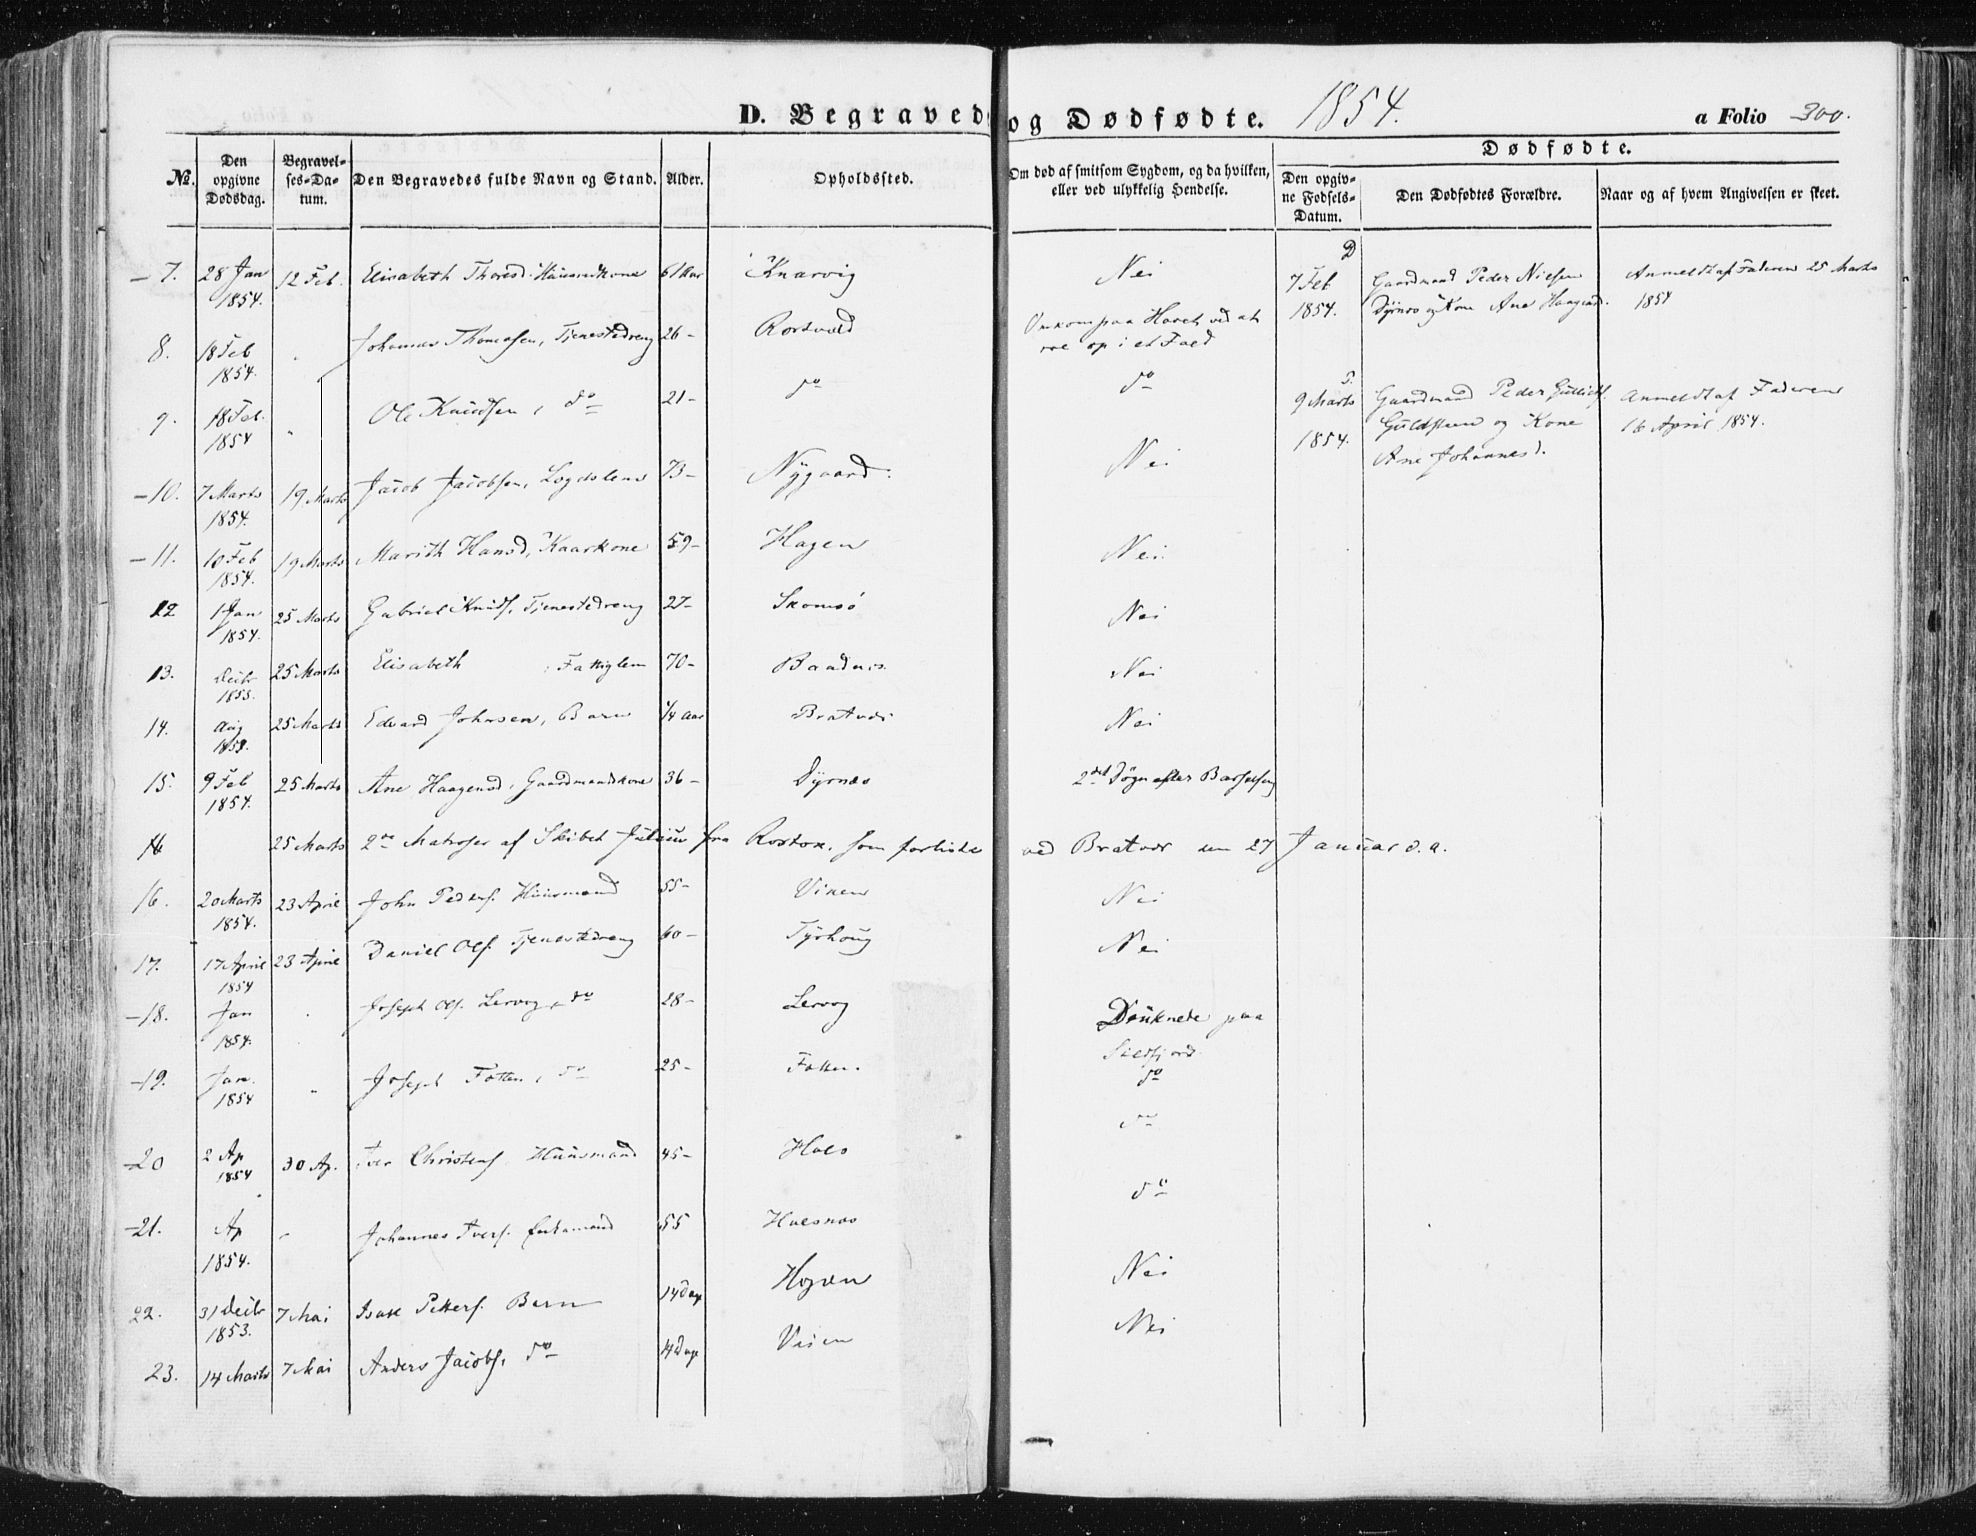 D. Begravede og Dødfødte. 1854. a Folio 300.
Dødfødte.
No. Den opgivne Dødsdag. Begravelses-Datum. Den Begravedes fulde Navn og Stand. Alder. Opholdssted. Om død af smitsom Sygdom, og da hvilken, eller ved ulykkelig Hendelse. Den opgivne Fødsels-Datum. Den Dødfødtes Forældre. Naar og af hvem Angivelsen er skeet.
7. 28 Jan 1854. 12 Feb. Elisabeth Thoresd. Huusmdkone 61 Aar Knarvig Nei
8. 18 Feb 1854. Johannes Thomasen, Tjenestedreng 26 - Rostvold Omkom paa Havet ved at roe op i et Fald
9. 18 Feb. 1854 Ole Knudsen, do 21 - do do
10. 7 Marts 1854. 19 Marts Jacob Jacobsen, Logdslem 73 - Nygaard. Nei
11. 10 Feb 1854. 19 Marts Marith Hansd, Kaarkone 59 - Hagen Nei.
12 1 Jan 1854. 25 Marts Gabriel Knuds. Tjenestedreng 27 - Skomsö Nei
13. Decbr 1853. 25 Marts Elisabeth , Fattiglem 70 - Baadnes Nei
14. Aug 25 Marts Edvard Johnsen, Barn 1/4 Aar Bratvær Nei
15. 9 Feb 1854. 25 Marts Ane Haagensd, Gaardmandskone 36 - Dyrnæs 2det Døgn efter Barselseng
16 25 Marts 2de Matroser af Skibet Julius fra Rostok, som forliste ved Bratvær den 27 Januar d. a.
16. 20 Marts 1854. 23 April John Peders. Huusmand 55 - Viken Nei
17. 17 April 1854 23 April Daniel Ols. Tjenestedreng 60 - Tyrhoug Nei
18. Jan 1854. Joseph Ols. Lervog, do 28 - Lervog Druknede paa Sildfjord.
19. Jan. 1854 Joseph Foten, do 25 - Foten. do
20 2 Ap 1854 30 Ap. Iver Christens. Huusmand 45 - Hals do
21. Ap 1854. Johannes Ivers. Enkemand 55 Halsnæs do
22. 31 Decbr 1853. 7 Mai Isak Petters. Barn 14 Dage Hopen Nei
23. 14 Marts 7 Mai Anders Jacobs, do 4 Dage Veien Nei
D
7 Feb 1854. Gaardmand Peder Nielsen Dyrnæs og Kone Ane Haagensd. Anmeldt af Faderen 25 Marts 1854
P.
9 Marts 1854. Gaardmand Peder Gulliks. Guldsteen og Kone Ane Johannesd. Anmeldt af Faderen 16 April 1854.